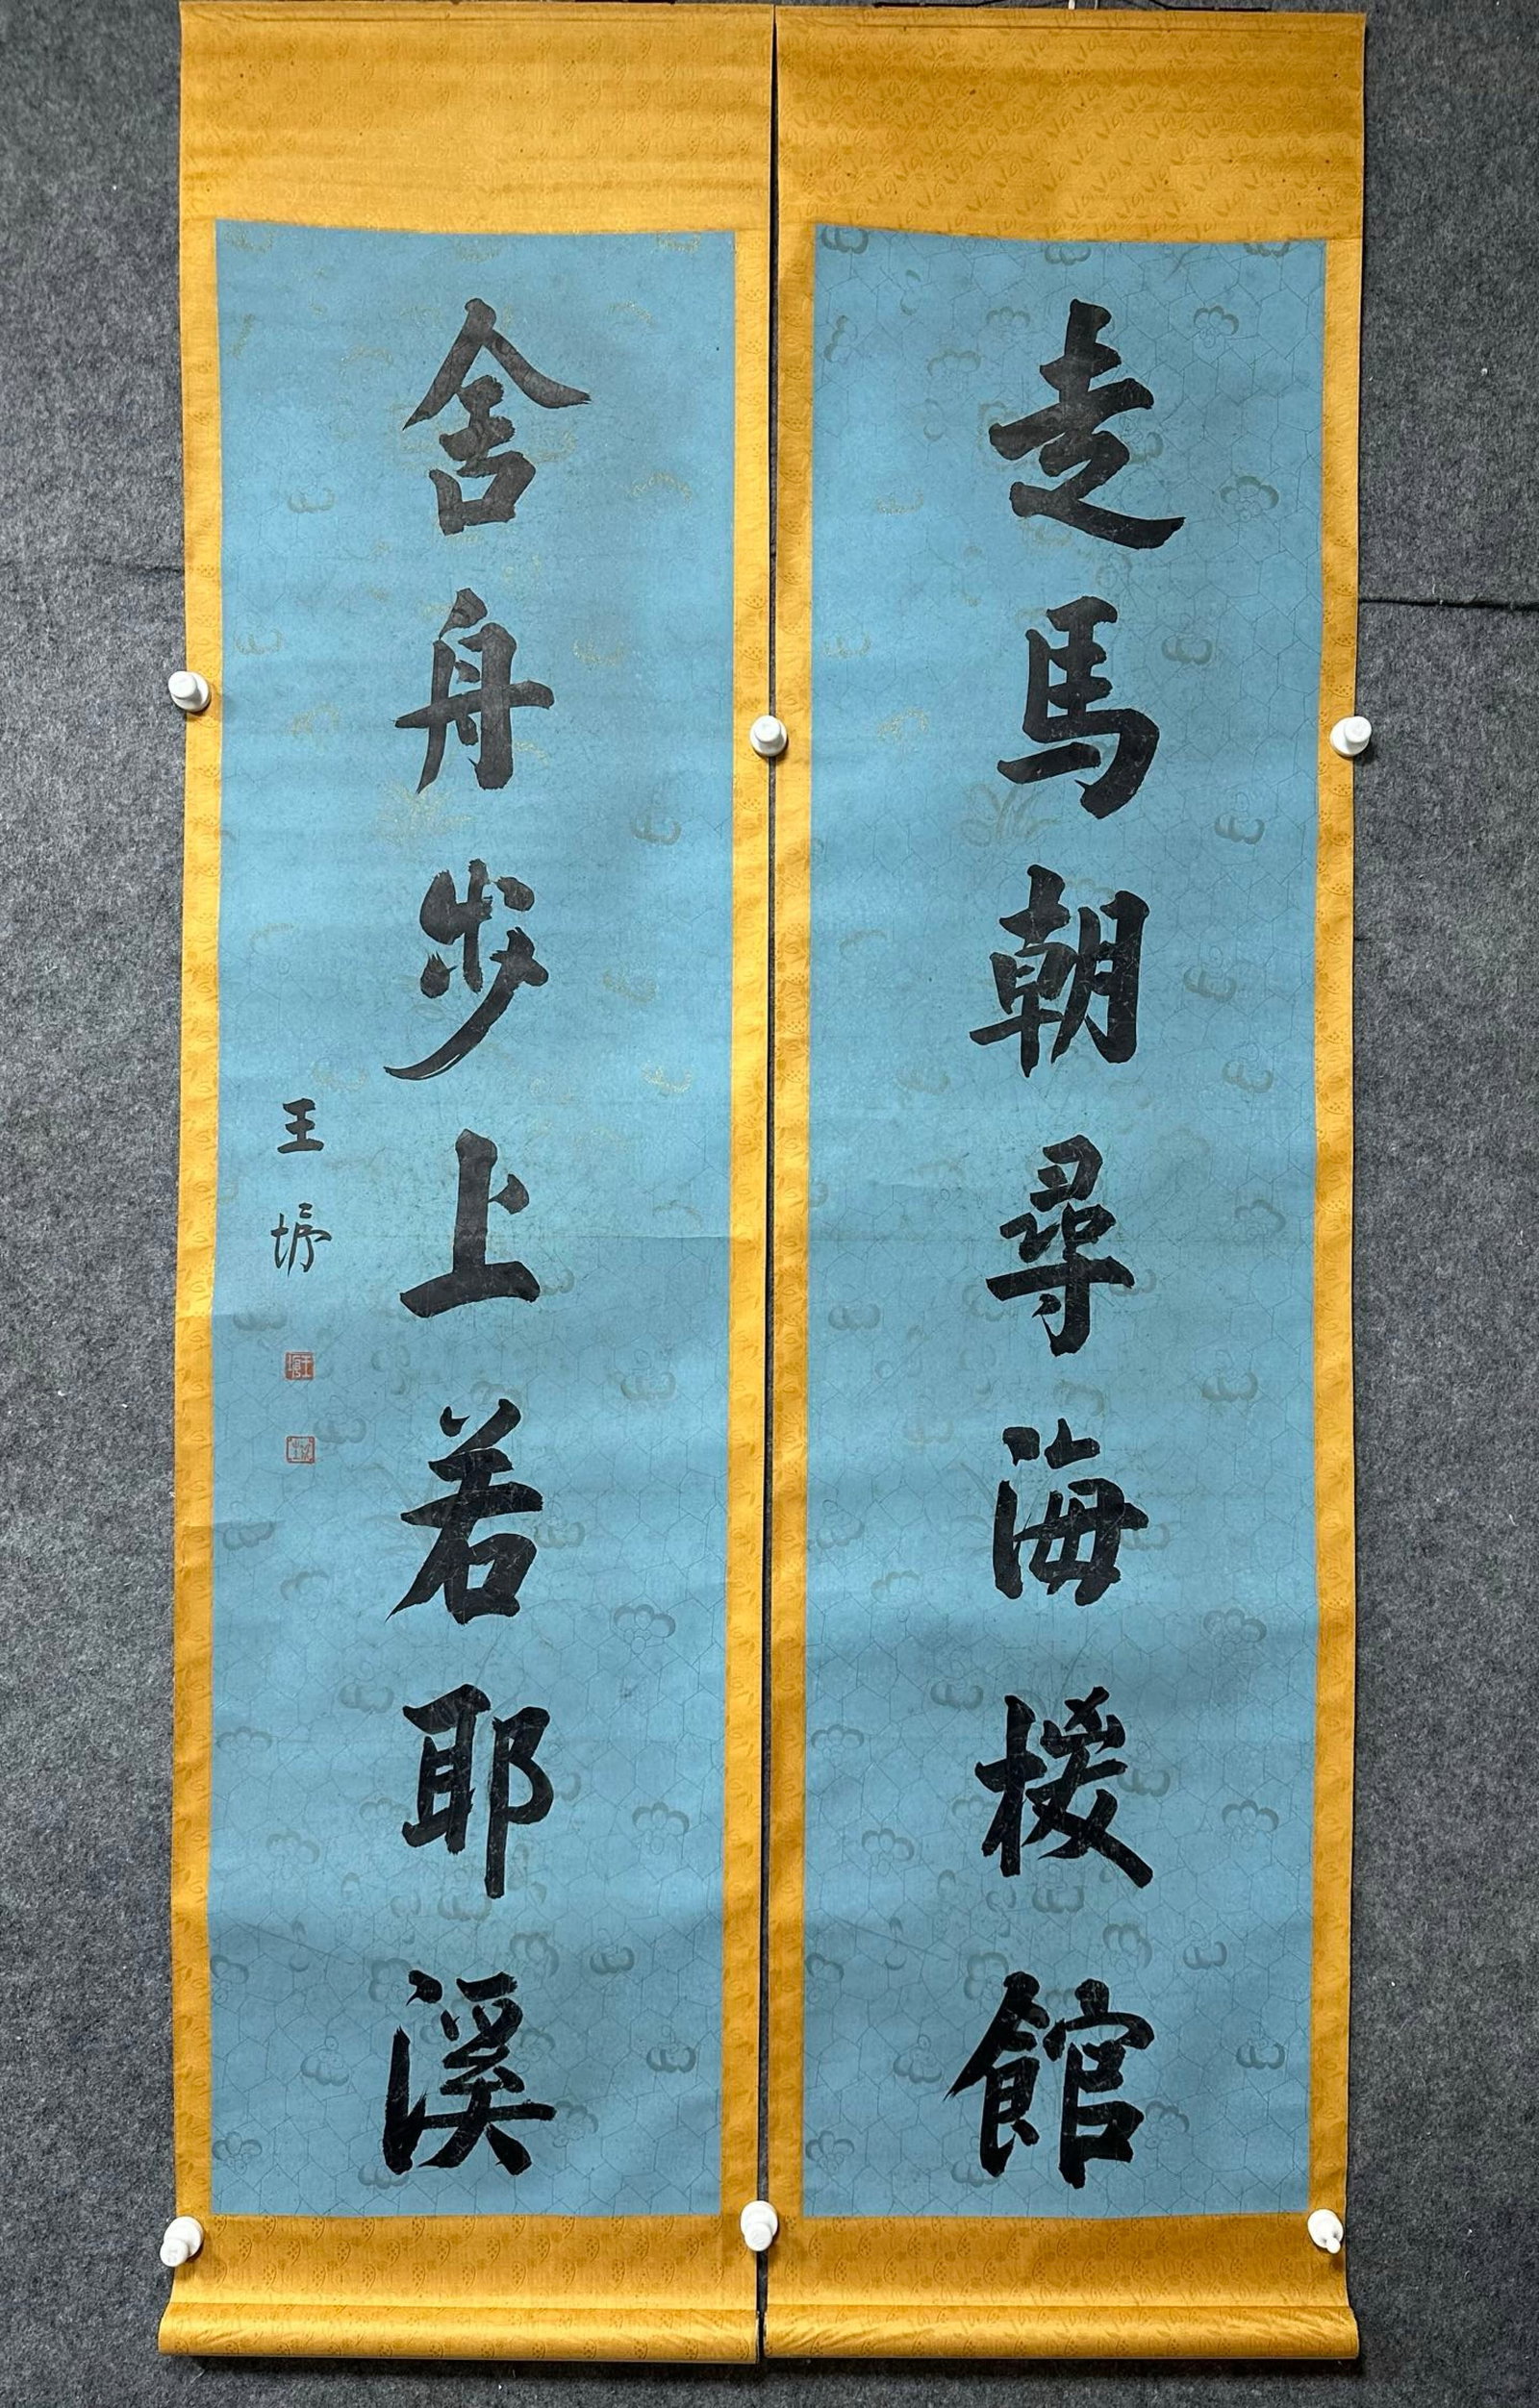 走馬朝尋海椶館
舍舟步上若耶溪
王垿